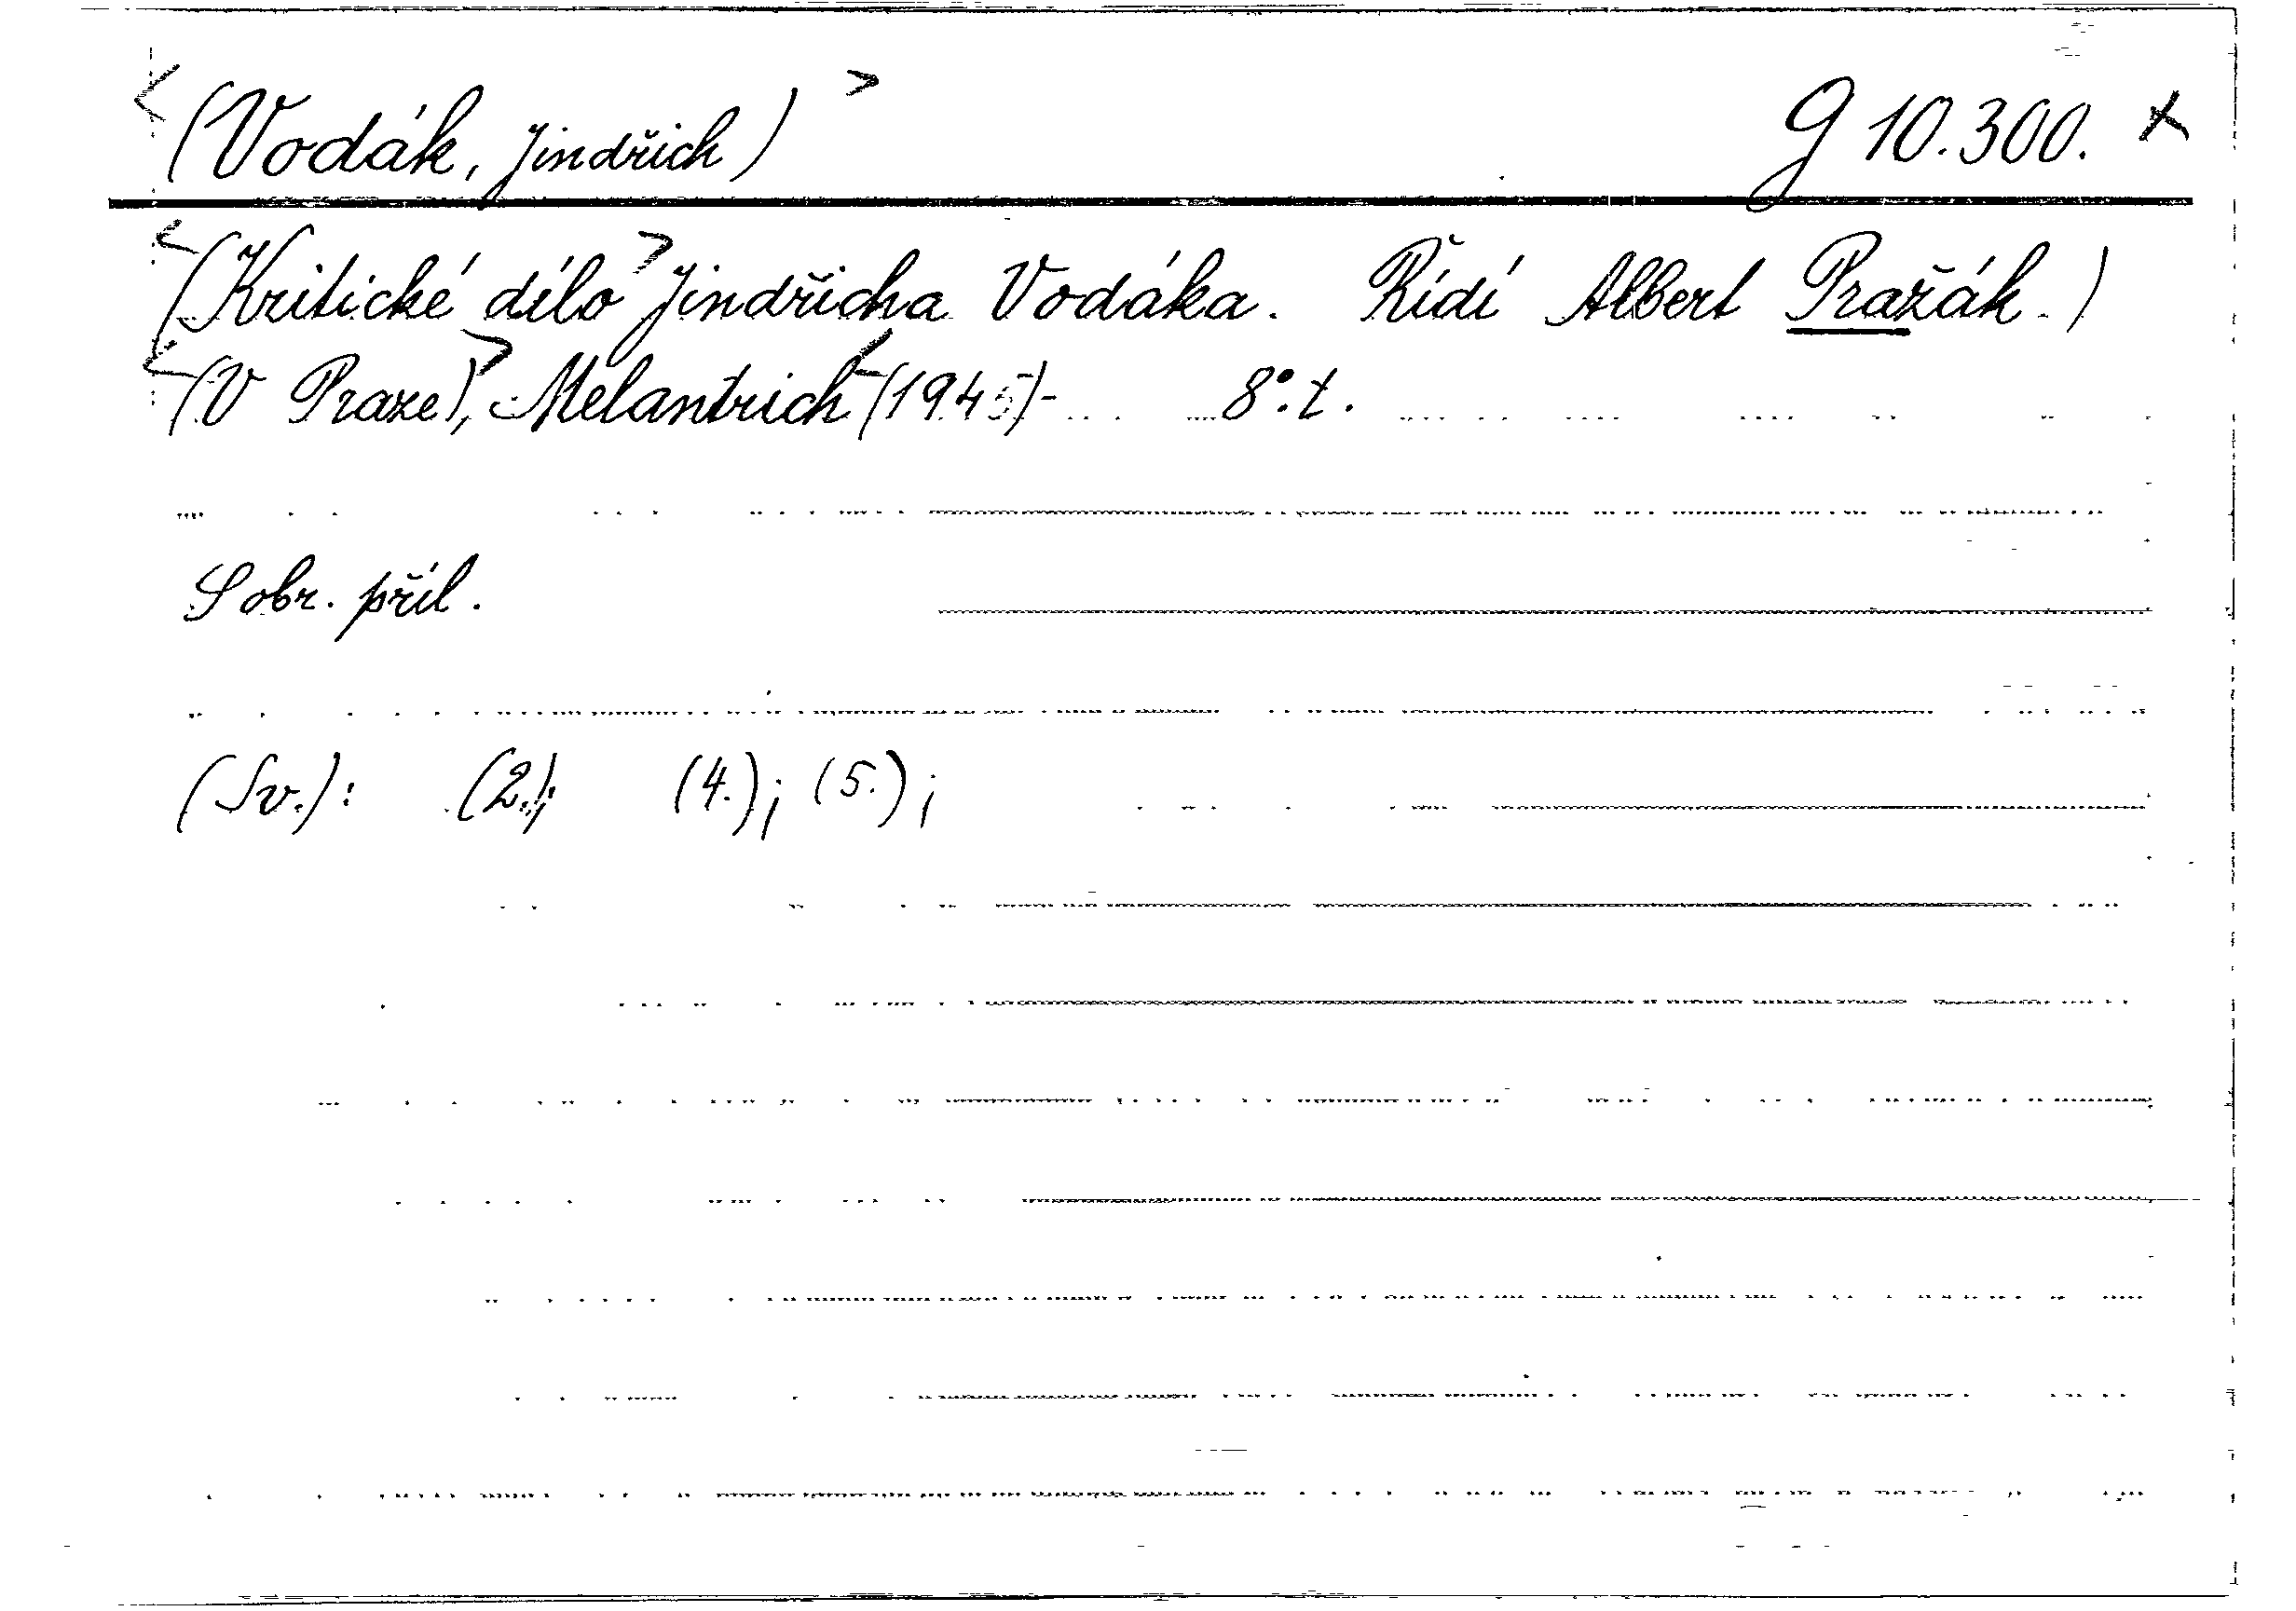 <(Vodák, Jindřich)> G 10.300. x
<(Kritické dílo> Jindřicha Vodáka. Řídí Albert Pražák.)
<(V Praze)>, Melantrich <(1945)- 8°. t.
S obr. příl.
(Sv.): (2.); (4.); (5.);